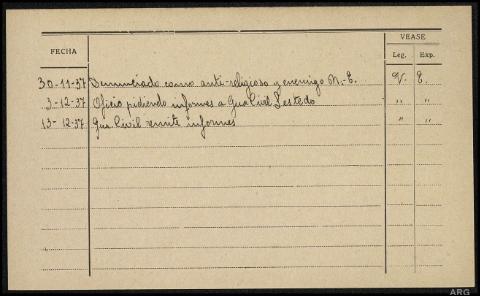 VEASE
FECHA
Leg. Exp.
30-11-37 Denunciado como anti-religioso y enemigo M.E. V. E.
3-12-37 Oficio pidiendo informes a Gua Civil " "
13-12-37 Gua. Civil remite informes " "
ARG